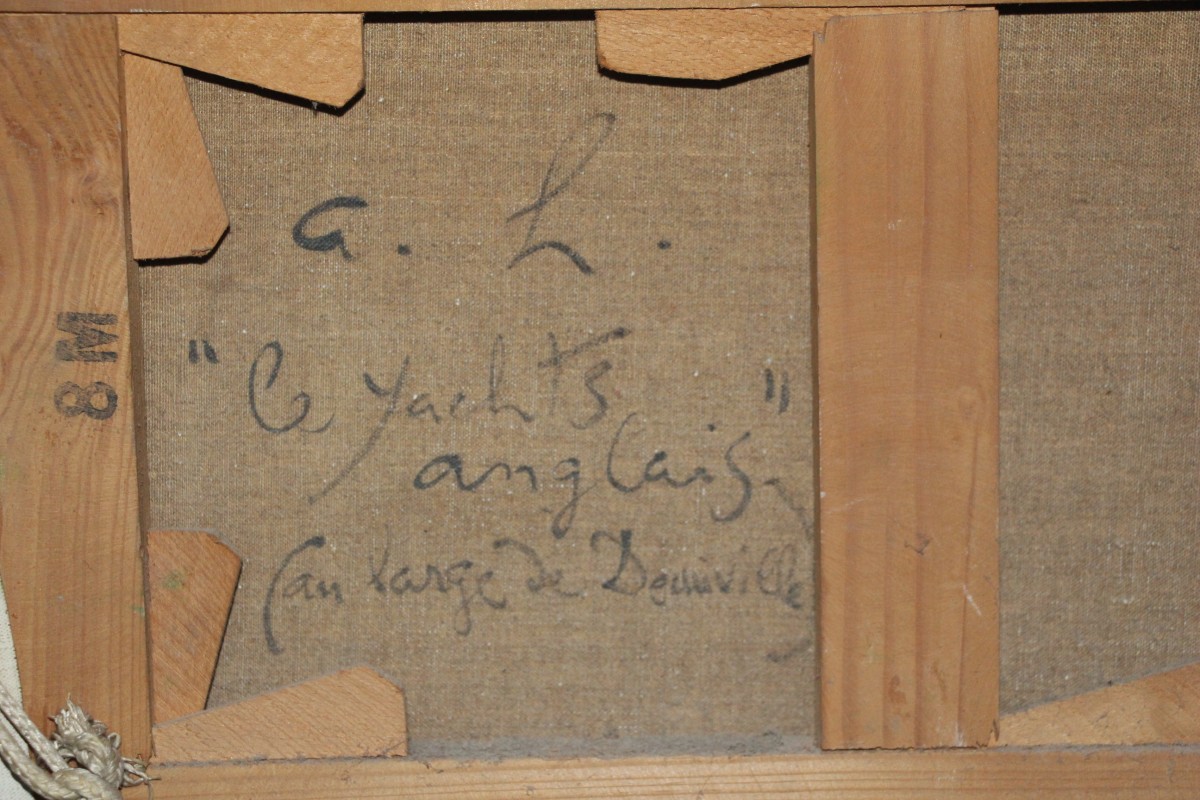 a. L.
"Le yachts"
anglais.
(au large de Deauville)
8M